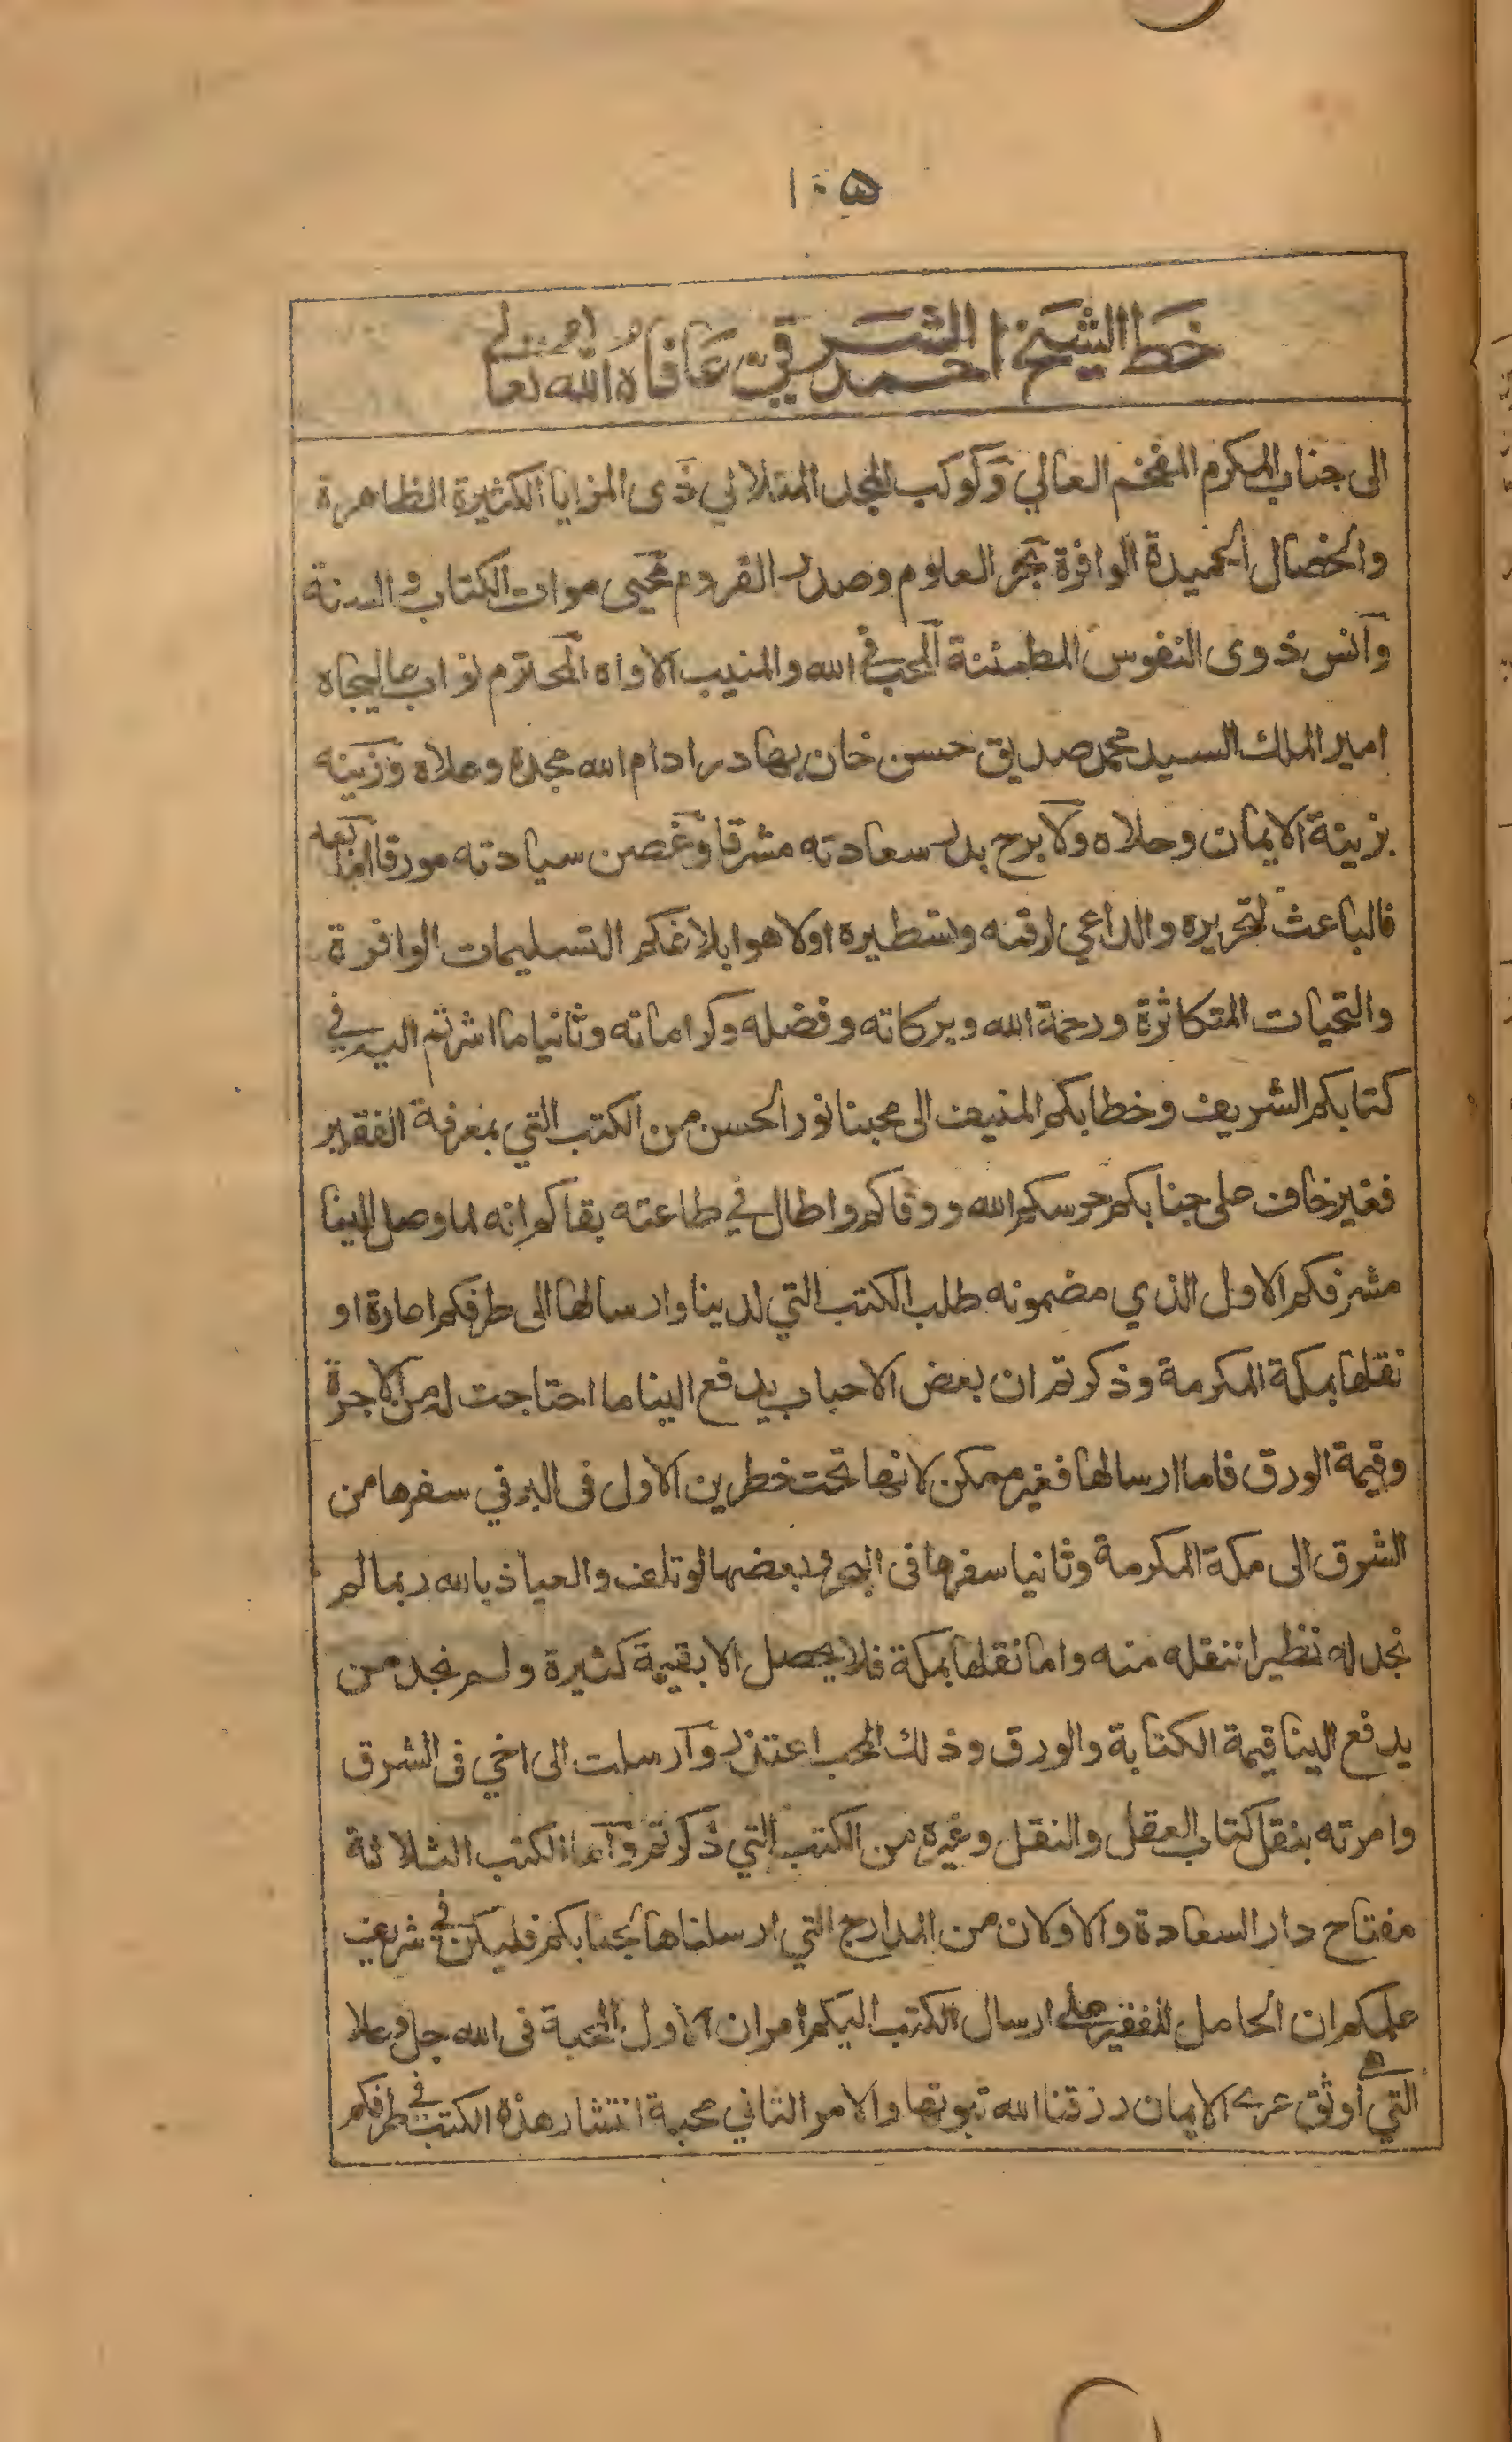 ١٠۵
خط الشيخ احمد الشرقي عافاه الله تعالى
الى جناب المكرم المفخم العالي وكوكب المجد المتلالي ذى المزايا الكثيرة الظاهرة
والخصال الحميدة الوافرة بحر العلوم وصدر القروم محيى موات الكتاب والسنة
وآنس ذوى النفوس المطمئنة المحب في الله والمنيب الاواه المحترم نواب عاليجاه
امير الملك السيد محمد صديق حسن خان بهادر ادام الله مجده وعلاه وزينه
بزينة الايمان وحلاه ولا برح بدر سعادته مشرقا وغصن سيادته مورقا اما بعد
فالباعث لتحريره والداعي لرقمه وتسطيره اولا هو ابلاغكم التسليمات الوافرة
والتحيات المتكاثرة ورحمة الله وبركاته وفضله وكراماته وثانيا ما اشرتم اليه في
كتابكم الشريف وخطابكم المنيف الى محبنا نور الحسن من الكتب التي بمعرفة الفقير
فغير خاف على جنابكم حرسكم الله ووقاكم واطال في طاعته بقاكم انه لما وصل الينا
مشرفكم الاول الذي مضمونه طلب الكتب التي لدينا وارسالها الى طرفكم اعارة او
نقلها بمكة المكرمة وذكرتم ان بعض الاحباب يدفع الينا ما احتاجت له من الاجرة
وقيمة الورق فاما ارسالها فغير ممكن لانها تحت خطرين الاول فى البر في سفرها من
الشرق الى مكة المكرمة وثانيا سفرها فى البحر وبعضها لو تلف والعياذ بالله ربما لم
نجد له نظيرا ننقله منه واما نقلها بمكة فلا يحصل الا بقيمة كثيرة ولم نجد من
يدفع الينا قيمة الكتابة والورق وذلك المحب اعتذر وآرسلت الى اخي فى الشرق
وامرته بنقل كتاب العقل والنقل وغيره من الكتب التي ذكرتم وآما الكتب الثلاثة
مفتاح دار السعادة والاولان من المدارج التي ارسلناها لجنابكم فليكن في شريف
علمكم ان الحامل للفقير على ارسال الكتب اليكم امران الاول المحبة فى الله جل وعلا
التي هى أوثق عرے الايمان رزقنا الله ثبوتها والامر الثاني محبة انتشار هذه الكتب في طرفكم